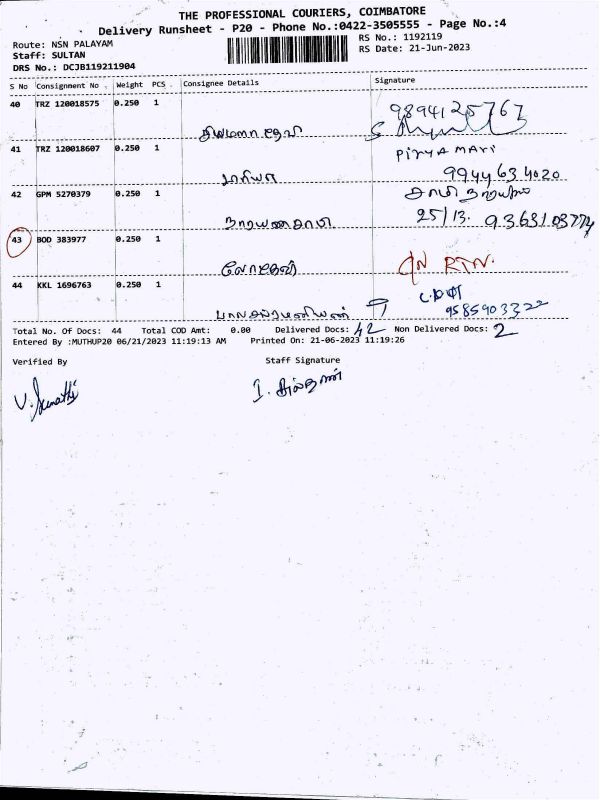 THE PROFESSIONAL COURIERS, COIMBATORE
Delivery Runsheet - P20 - Phone No.:0422-3505555 - Page No.:4
Route: NSN PALAYAM RS No.: 1192119
Staff: SULTAN RS Date: 21-Jun-2023
DRS No.: DCJB119211904
S No Consignment No . Weight PCS . Consignee Details Signature
40 TRZ 120018575 0.250 1 9894125767
41 TRZ 120018607 0.250 1 PIRYA MARI
மாரியா 99446 34020
42 GPM 5270379 0.250 1
நாராயணசாமி 25/13.
43 BOD 383977 0.250 1
லோகேஸ் RTN.
44 KKL 1696763 0.250 1
பாலசுப்ரமணியன் 9585903322
Total No. Of Docs: 44 Total COD Amt: 0.00 Delivered Docs: 42 Non Delivered Docs: 2
Entered By :MUTHUP20 06/21/2023 11:19:13 AM Printed On: 21-06-2023 11:19:26
Verified By Staff Signature